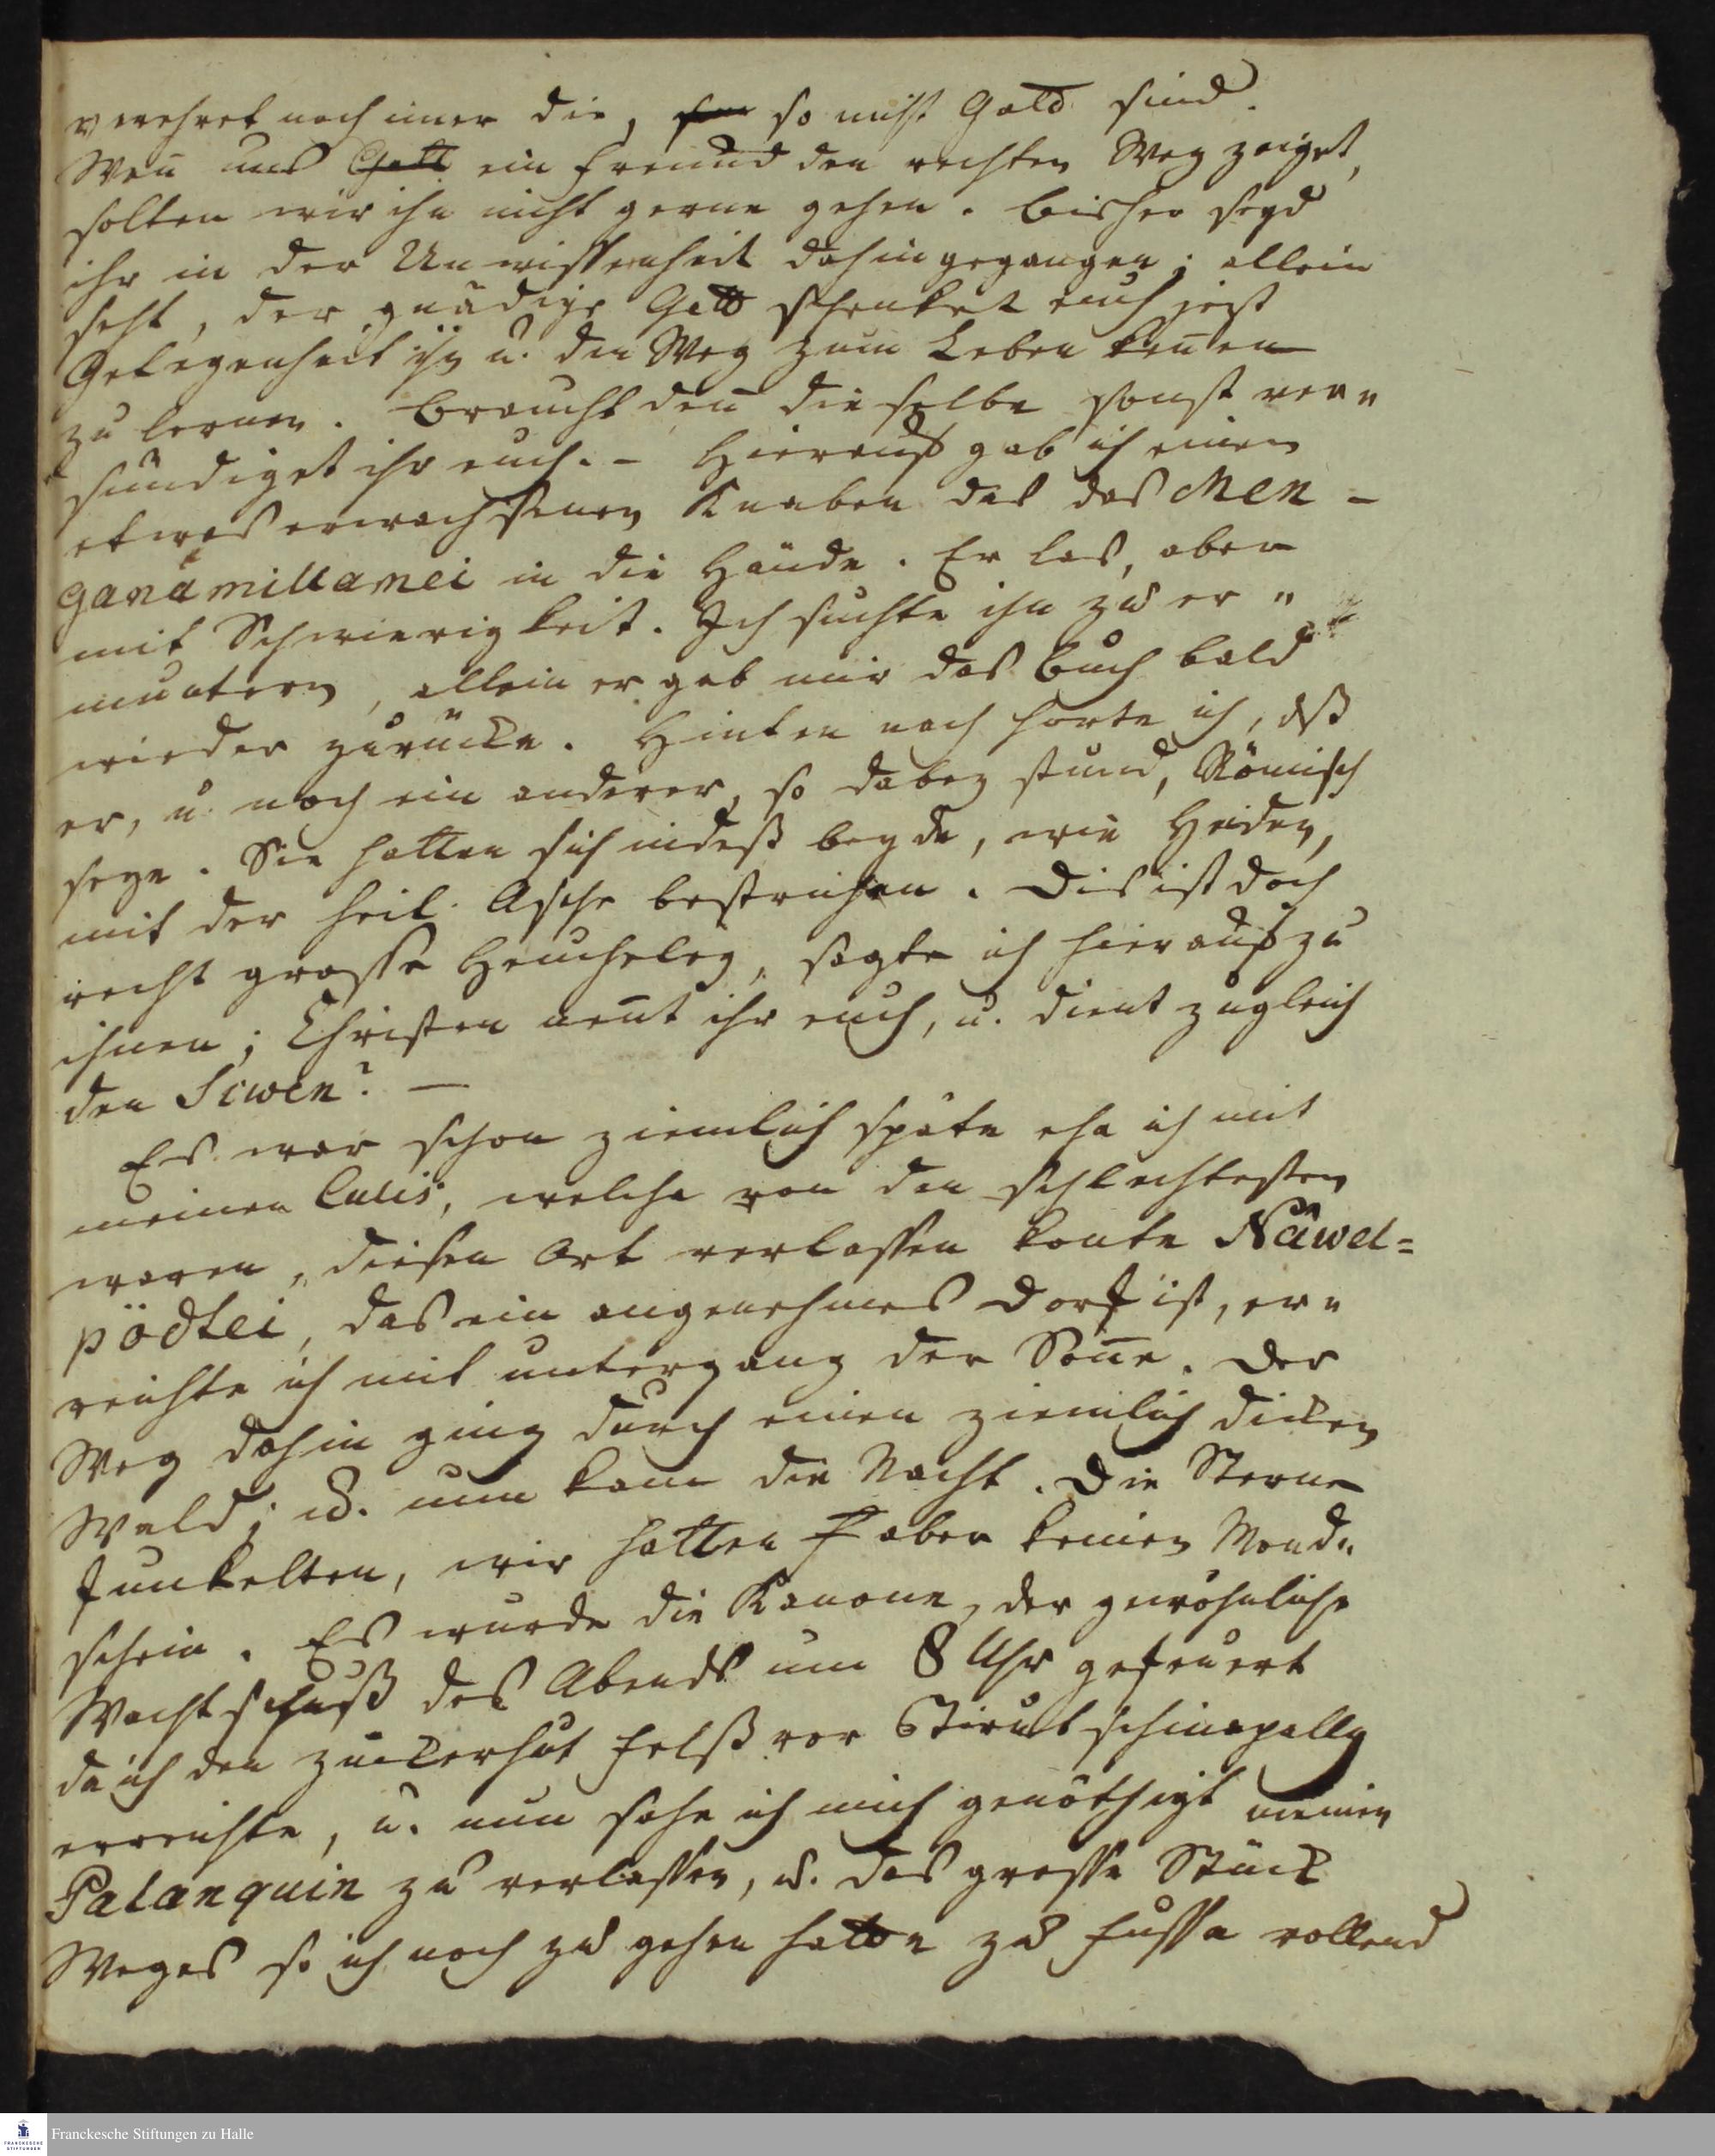 verehret noch imer die, so nicht Gott sind.
Wen̄ uns Gott ein Freund den rechten Weg zeiget,
solten wir ihn nicht gerne gehen. Bisher seyd
ihr in der Unwissenheit dahingegangen; allein
seht, der gnädige Gott schenket euch jezt
Gelegenheit ihn u. den Weg zum Leben ken̄en
zu lernen. Braucht den̄ dieselbe sonst ver„
sündiget ihr euch. – Hierauf gab ich einen
etwas erwachsenen Knaben das das Men-
ganámillamei in die Hände. Er las, aber
mit Schwierigkeit. Ich suchte ihn zu er„
muntern, allein er gab mir das Buch bald
wieder zurücke. Hinten nach horte ich, dß
er, u. noch ein anderer, so dabey stund, Römisch
seyn. Sie hatten sich indeß beyde, wie Heiden,
mit der heil. Asche bestrichen. Dis ist doch
recht grosse Heucheley, sagte ich hierauf zu
ihnen; Christen nen̄t ihr euch, u. dient zugleich
den Siwen? –
Es war schon ziemlich späte ehe ich mit
meinen Culis, welche von den schlechtesten
waren, diesen Ort verlassen konte Nâwel=
pödtei, das ein angenehmes Dorf ist, er„
reichte ich mit untergang der Son̄e. Der
Weg dahin ging durch einen ziemlich dicken
Wald; u. nun kam die Nacht. Die Sterne
funkelten, wir hatten aber keinen Mond„
schein. Es wurde die Kanone, der gewöhnliche
Wachtschuß des Abends um 8 Uhr gefeuert
da ich den zuckerhut Felß vor Tirutschinapally
erreichte, u. nun sahe ich mich genöthigt meinen
Palanquin zu verlassen, u. das grosse Stück
Weges so ich noch zu gehen hatte zu Fusse vollend
Franckesche Stiftungen zu Halle